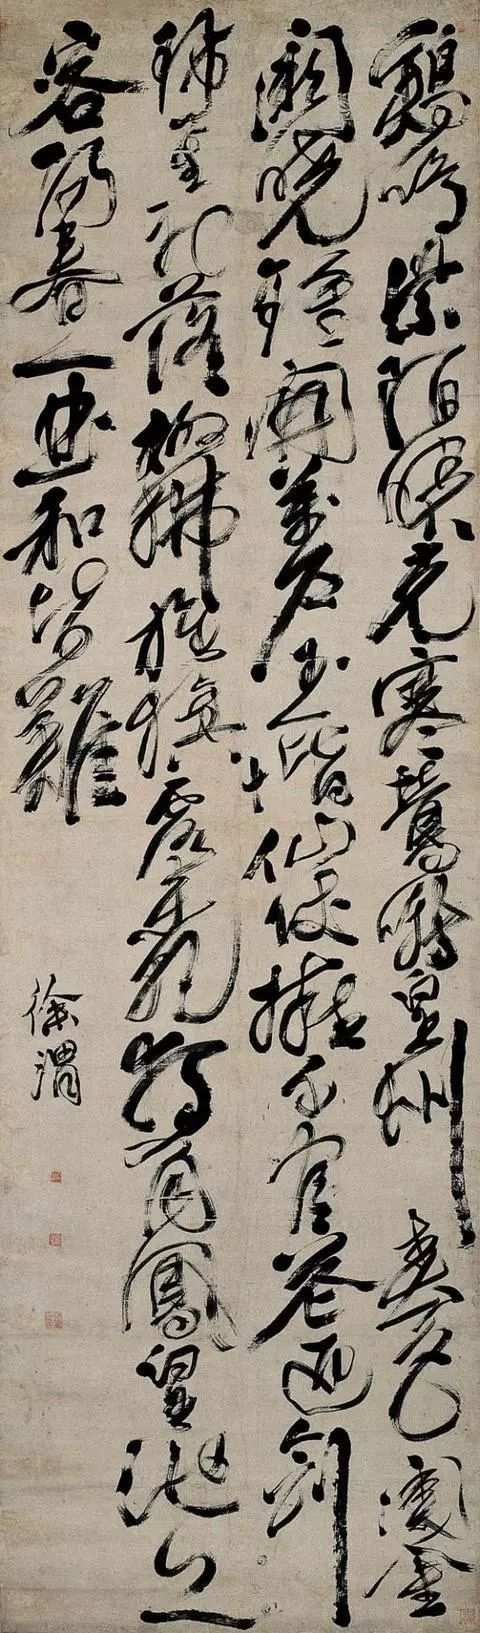 鷄鳴紫陌曙光寒鶯囀皇州春色闌金
闕曉鐘開萬戶玉階仙仗擁千官花迎劍
珮星初落柳拂旌旗露未乾獨有鳳皇池上
客陽春一曲和皆難
徐渭